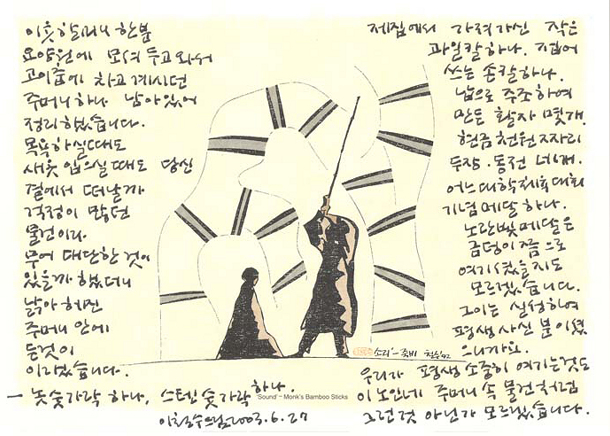 이웃 할머니 한분
요양원에 모셔 두고 와서
고이춤에 차고 계시던
주머니 하나 남아있어
정리했습니다.
목욕하실때도
새옷 입으실때도 당신
곁에서 떠날까
걱정이 많던
물건이라.
무어 대단한 것이
있을까 했더니
낡아 해진
주머니 안에
든것이
이랬습니다.
– 놋숟가락 하나, 스텐숟가락 하나.
제집에서 가져가신 작은
과일칼 하나. 접어
쓰는 손칼 하나.
납으로 주조하여
만든 활자 몇개.
현금 천원 짜리
두장. 동전 네개.
어느 대학체육대회
기념메달 하나.
노란빛 메달은
금덩이쯤으로
여기셨을지도
모르겠습니다.
그이는 실성하여
평생 사신 분이셨
으니까요.
우리가 평생 소중히 여기는것도
이 노인네 주머니 속 물건처럼
그런것 아닌가 모르겠습니다.
소리-죽비 철수 '92
'Sound' – Monk's Bamboo Sticks
이철수드림 2003.6.27